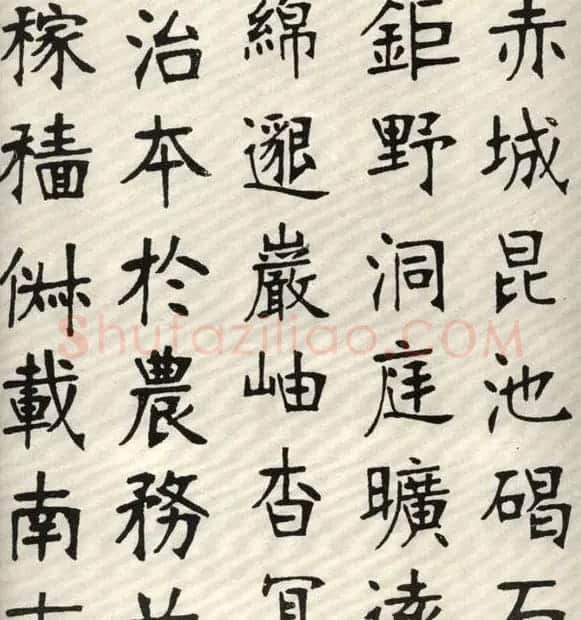 赤城昆池碣石
鉅野洞庭曠遠
綿邈巖岫杳冥
治本於農務
稼穡俶載南
Shufaziliao.COM